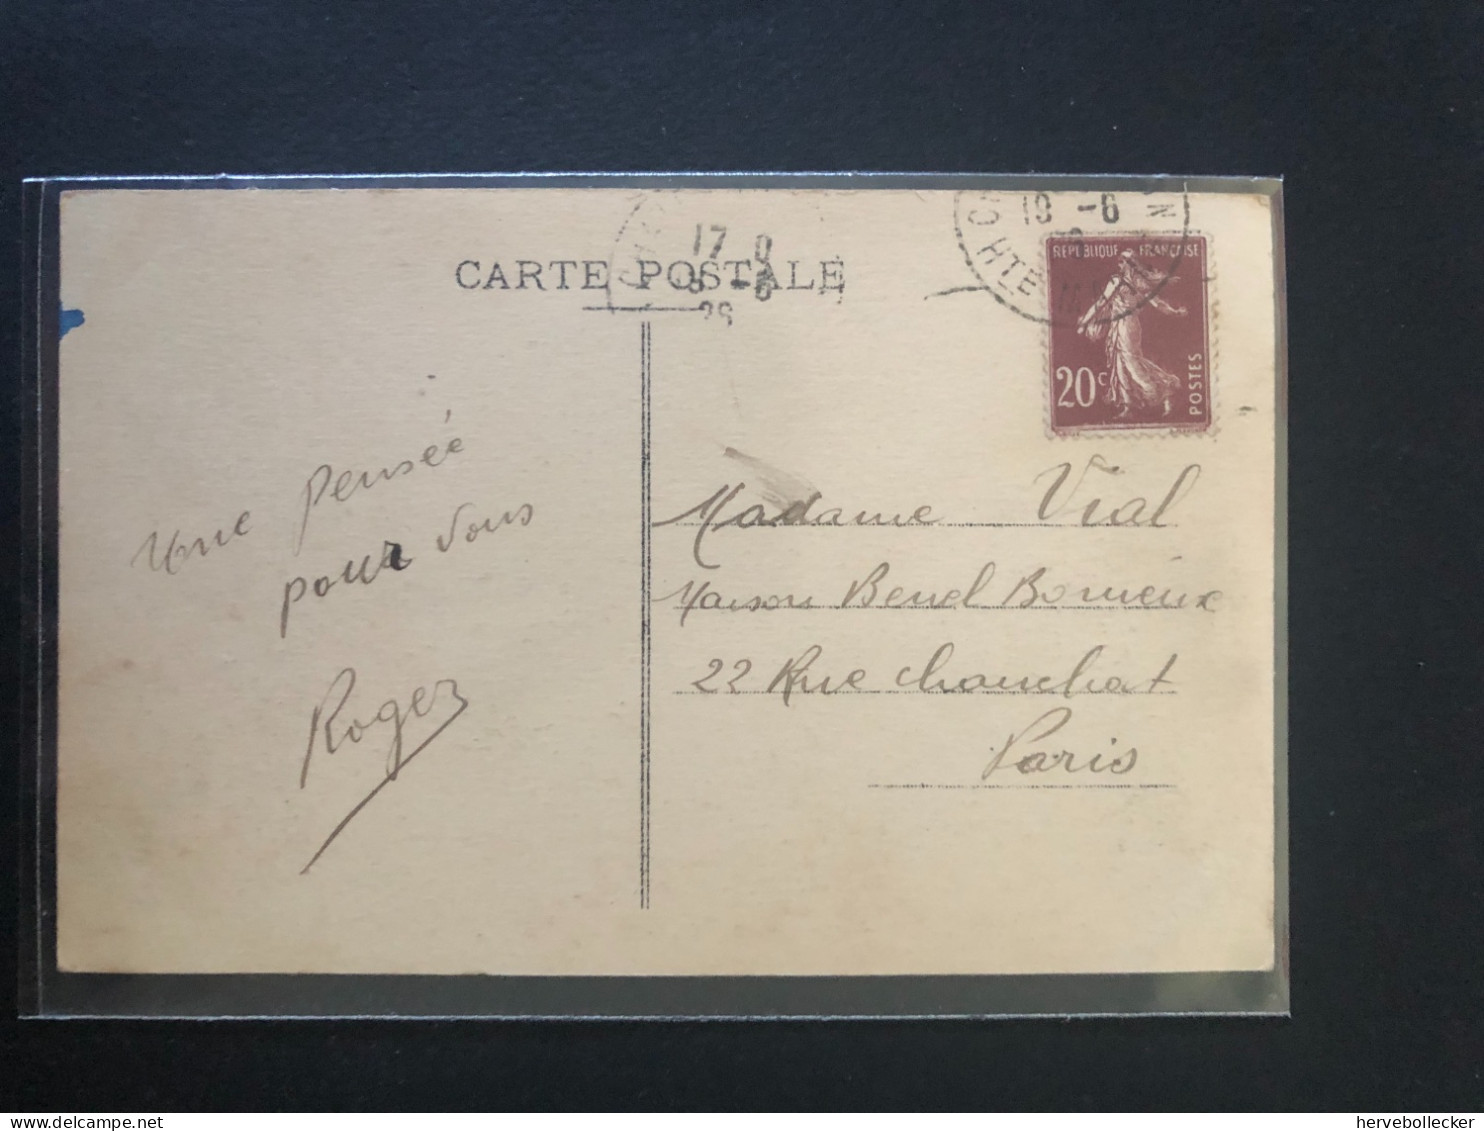 CARTE POSTALE
17 0
8 -6
26
19 -6
HTE M
REPUBLIQUE FRANÇAISE
20c
POSTES
Une Pensée
pour Vous
Roger
Madame Vial
Maison
22 Rue Chauchat
Paris
hervebollecker